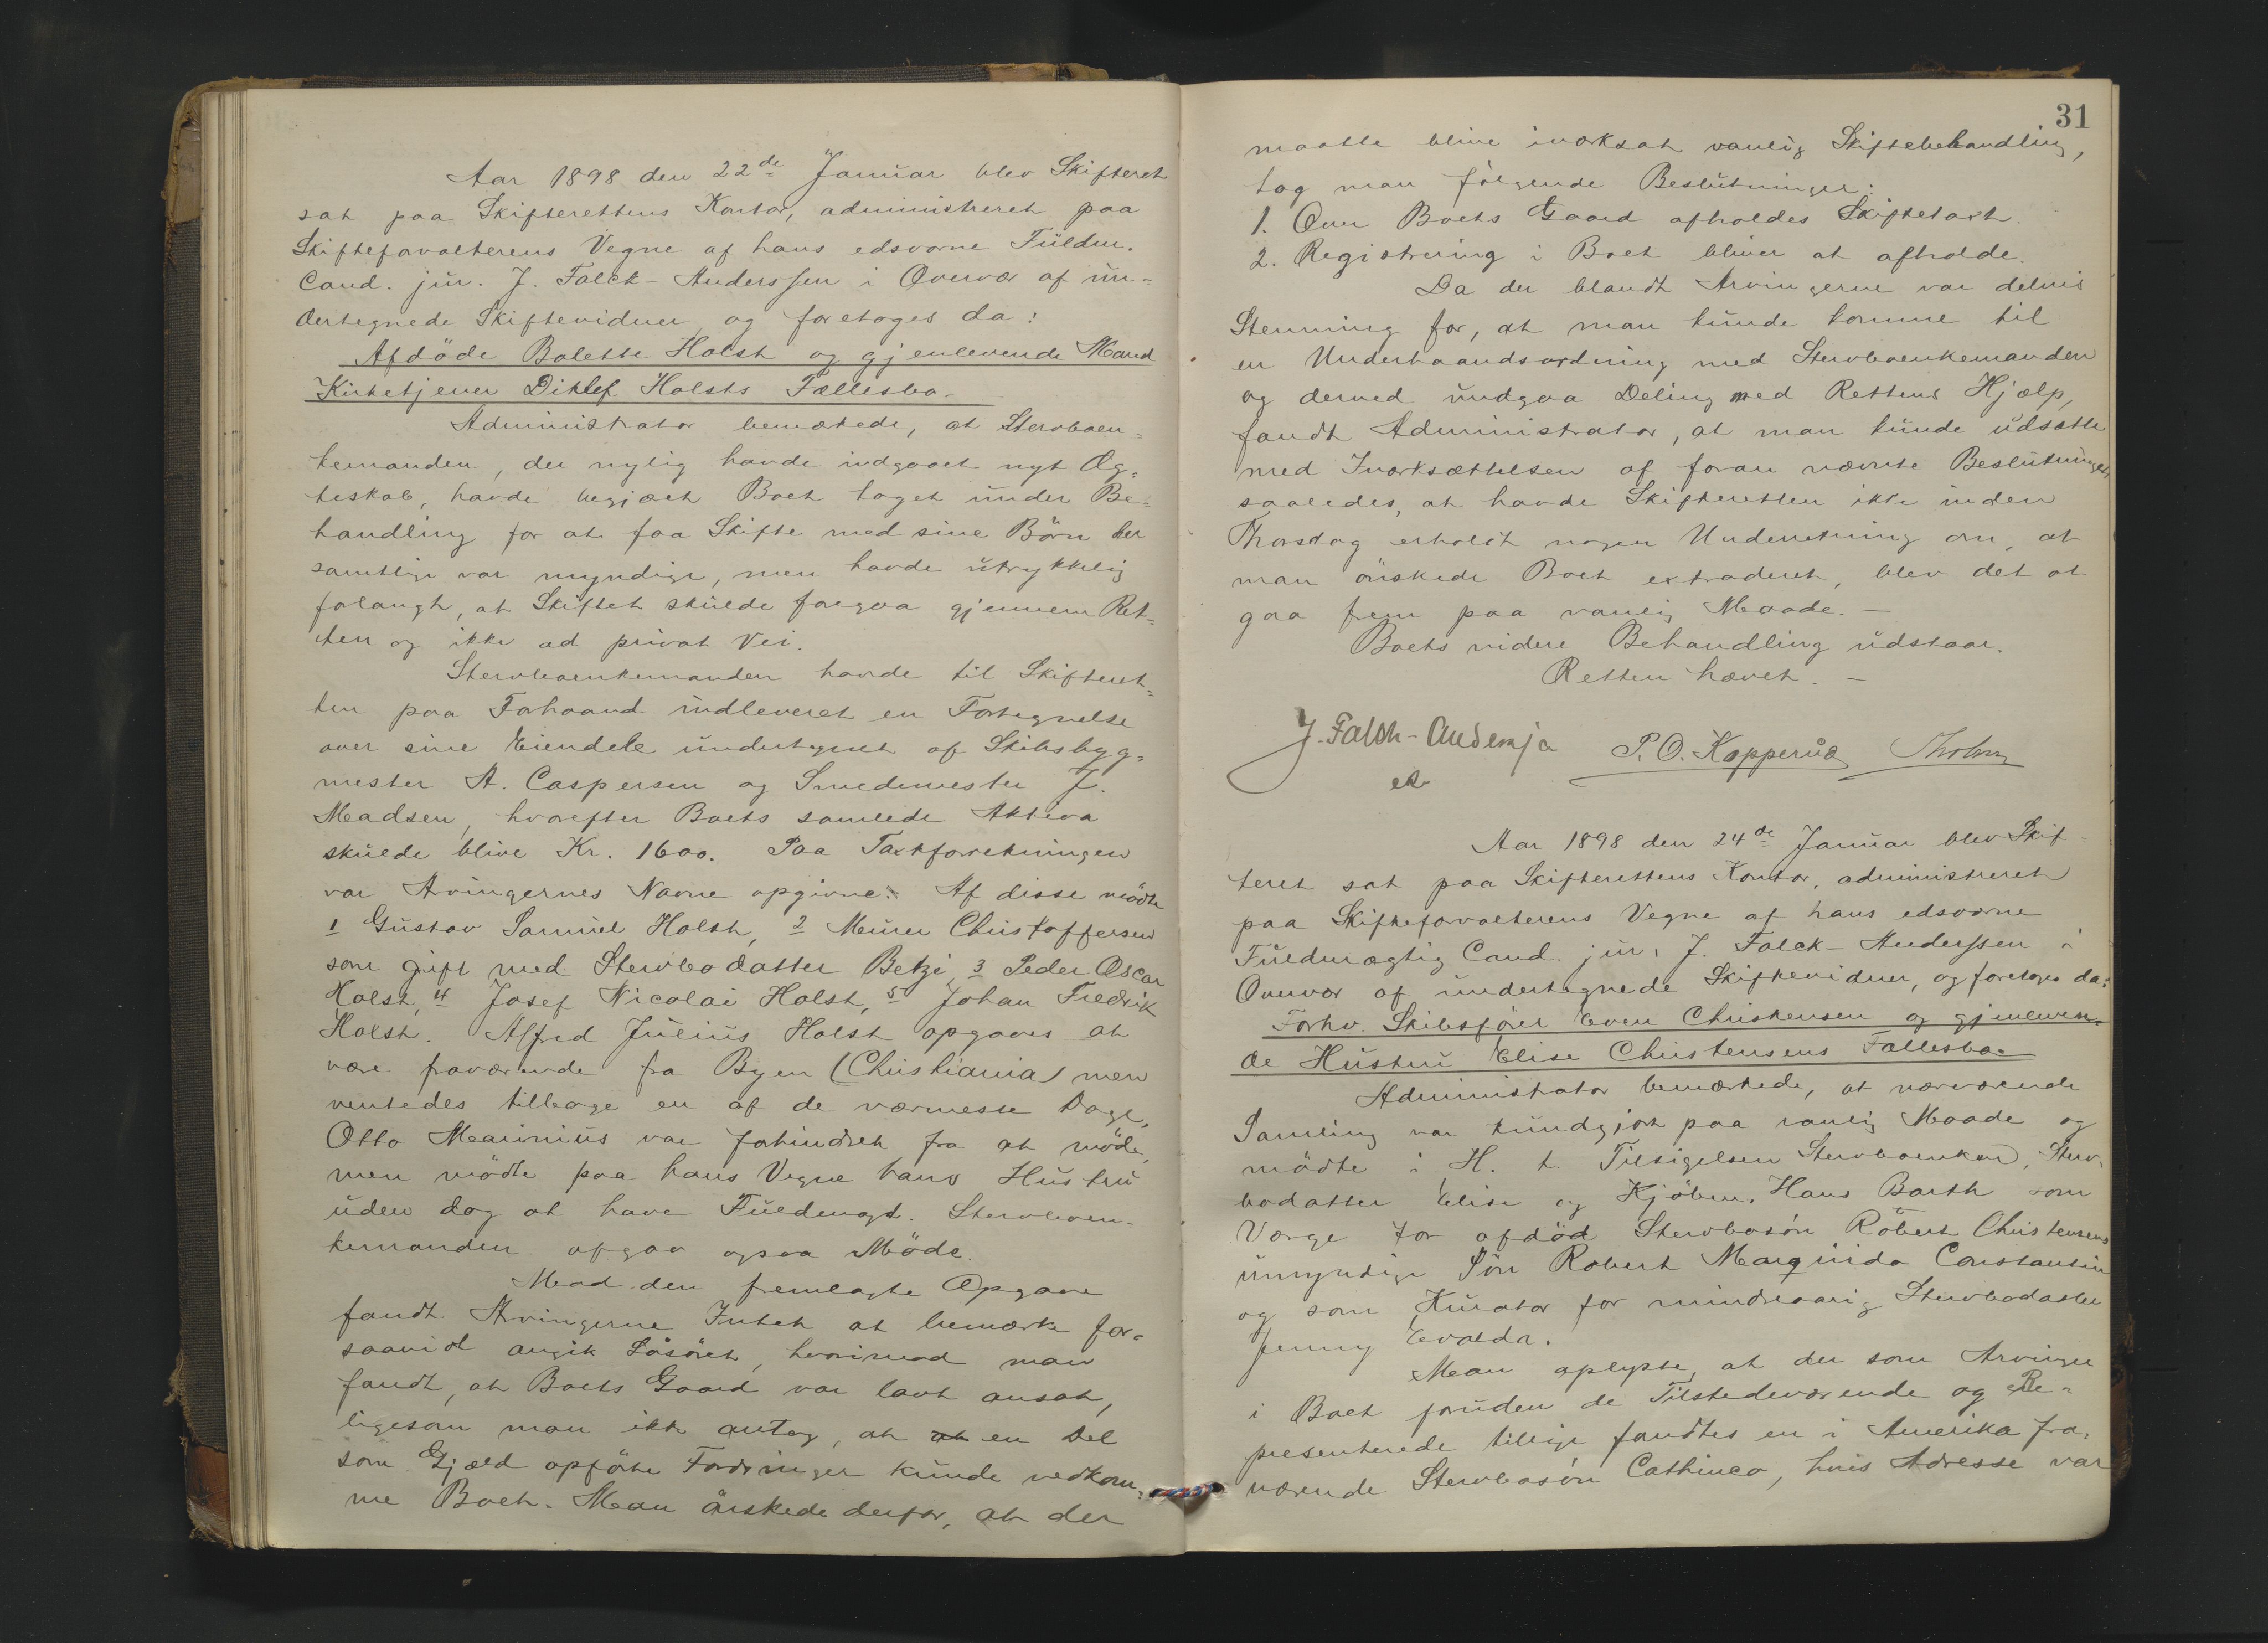 Aar 1898 den 22de Januar blev Skifteret
sat paa Skifterettens Kontor, administreret paa
Skifteforvalterens Vegne af hans edsvorne Fuldm.
Cand. jur. J. Falck-Anderssen i Overvær af un-
dertegnede Skiftevidner og foretoges da:
Afdöde Bolette Holst og gjenlevende Mand
Kirketjener Ditlef Holsts Fællesbo.
Administrator bemærkede, at Stervboen-
kemanden, der nylig havde indgaaet nyt Æg-
teskab, havde begjæret Boet taget under Be-
handling for at faa Skifte med sine Börn der
samtlige var myndige, men havde utrykkelig
forlangt, at Skiftet skulde foregaa gjennem Ret-
ten og ikke ad privat Vei.
Stervboenkemanden havde til Skifteret-
ten paa Forhaand indleveret en Fortegnelse
over sine Eiendele undertegnet af Skibsbyg-
mester A. Caspersen og Smedemester J.
Madsen, hvorefter Boets samlede Aktiva
skulde blive Kr. 1600. Paa Taxtforretningen
var Arvingernes Navne opgivne. Af disse mödte
1 Gustav Samuel Holst, 2 Murer Christoffersen
som gift med Stervbodatter Betzi, 3 Peder Oscar
Holst, 4 Josef Nicolai Holst, 5 Johan Fredrik
Holst. Alfred Julius Holst opgaves at
være fraværende fra Byen (Christiania) men
ventedes tilbage en af de nærmeste Dage,
Otto Maurinius var forhindret fra at möde,
men mödte paa hans Vegne hans Hustru
uden dog at have Fuldmagt. Stervboen-
kemanden afgav ogsaa Möde.
Mod den fremlagte Opgave
fandt Arvingerne Intet at bemærke for-
saavidt angik Lösöret, hvorimod man
fandt, at Boets Gaard var lavt ansat,
ligesom man ikke antog, at at en Del
som Gjæld opförte Fordringer kunde vedkom-
me Boet. Man önskede derfor, at der
31
maatte blive iværksat vanlig Skiftebehandling,
tog man fölgende Beslutninger:
1. Over Boets Gaard afholdes Skiftetaxt.
2. Registrering i Boet bliver at afholde.
Da der blandt Arvingerne var delvis
Stemning for, at man kunde komme til
en Underhaandsordning med Stervboenkemanden
og derved undgaa Deling med Rettens Hjælp,
fandt Administrator, at man kunde udsætte
med Iværksættelsen af foran nævnte Beslutninger,
saaledes, at havde Skifteretten ikke inden
Thorsdag erholdt nogen Underretning om, at
man önskede Boet extraderet, blev det at
gaa frem paa vanlig Maade. —
Boets videre Behandling udstaar.
Retten hævet. —
J. Falck-Anderssen
P. O. Kopperud
Aar 1898 den 24de Januar blev Skif-
teret sat paa Skifterettens Kontor, administreret
paa Skifteforvalterens Vegne af hans edsvorne
Fuldmægtig Cand. jur. J. Falck-Anderssen i
Overvær af undertegnede Skiftevidner, og foretoges da:
Forhv. Skibsförer Even Christensen og gjenleven-
de Hustru Elise Christensens Fællesbo.
Administrator bemærkede, at nærværende
Samling var kundgjort paa vanlig Maade og
mödte i H. t. Tilsigelsen Stervboenken, Sterv-
bodatter Elise og Kjöbm. Hans Barth som
Værge for afdöd Stervbosön Robert Christensens
umyndige Sön Robert Marquido Constantin
og som Kurator for mindreaarig Stervbodatter
Jenny Evalda.
Man oplyste, at der som Arvinger
i Boet foruden de Tilstedeværende og Re-
presenterede tillige fandtes en i Amerika fra-
værende Stervbosön Cathinco, hvis Adresse var